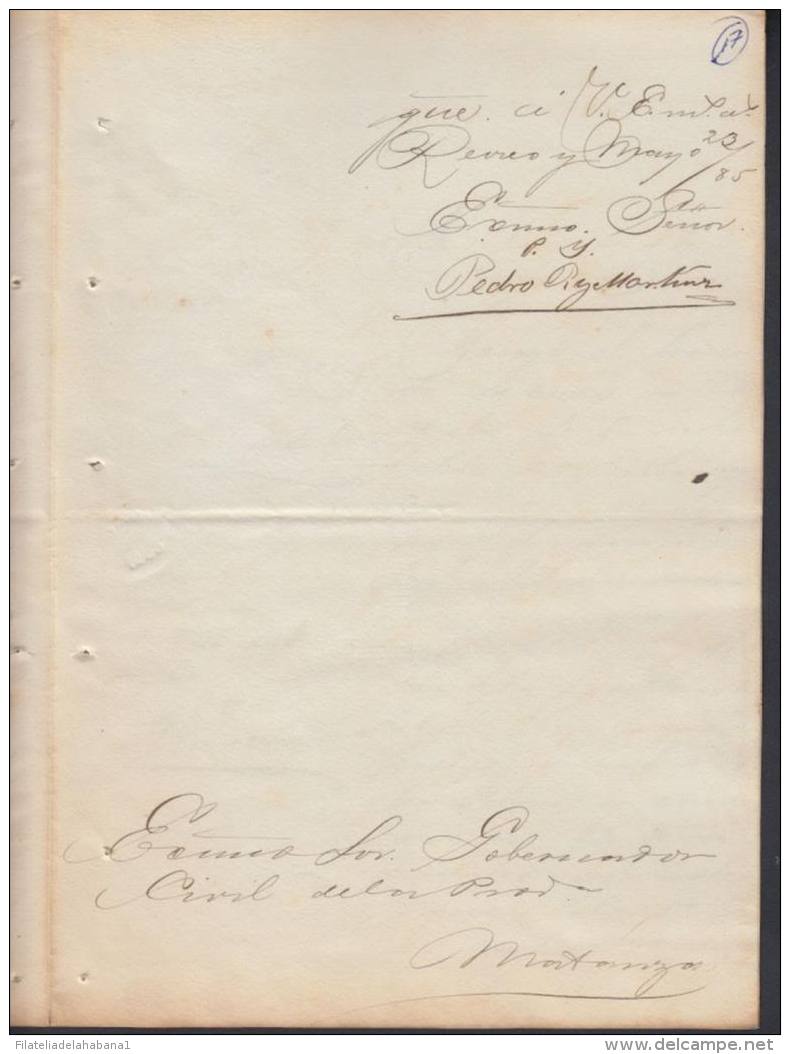 17
gue. á V. E. m.s a.s
Recreo y Mayo 23/85
Exmo. Señor.
P. Y.
Pedro Rey Martinez
Exmo Sor. Gobernador
Civil de la Prov.a
Matanzas
FilateliadelaHabana1
www.delcampe.net